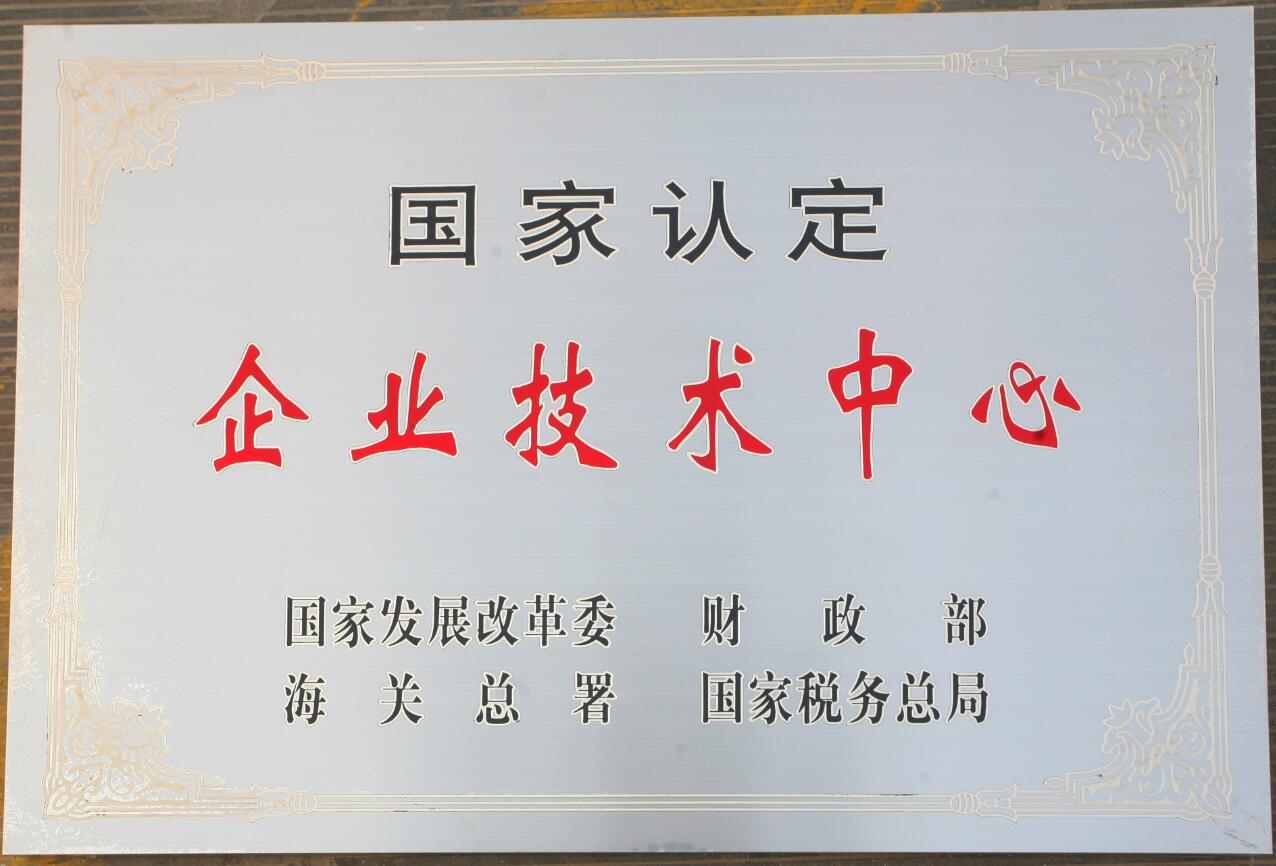 国家认定
企业技术中心
国家发展改革委 财政部
海关总署 国家税务总局